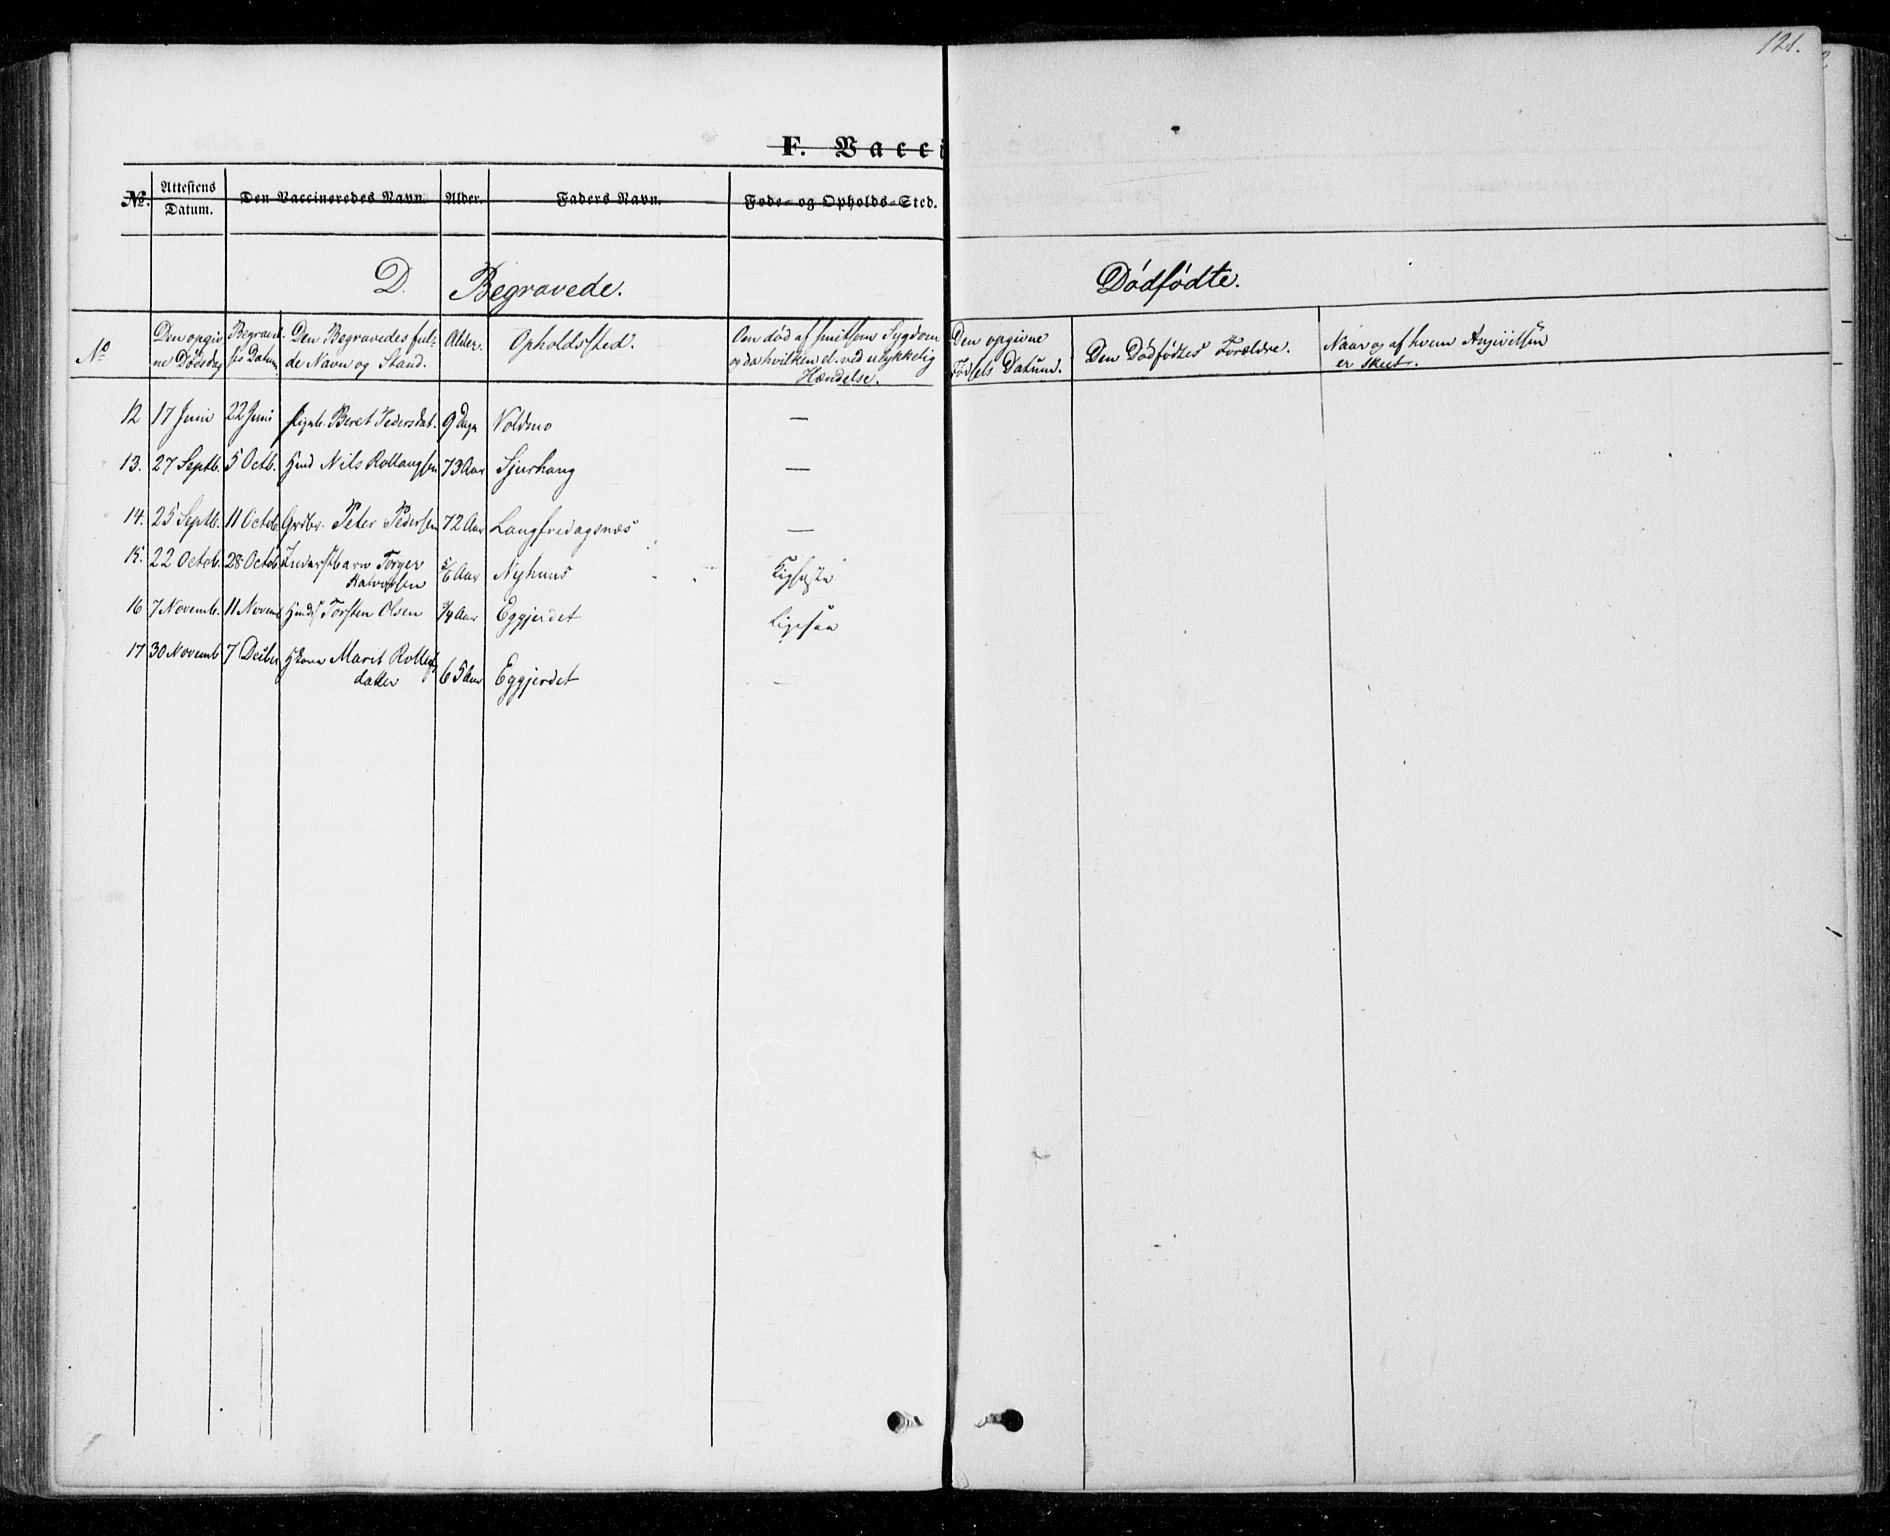 121.
F. Vacci
No.
Attestens Datum.
Den Vaccineredes Navn.
Alder.
Faders Navn.
Føde- og Opholds-Sted.
D. Begravede.
Dødfødte.
No
Den opgivne Dødsdag
Begravelses Datum.
Den Begravedes fulde Navn og Stand.
Alder.
Opholdssted.
Om død af smitsom Sygdom og da hvilken el. ved ulykkelig Hændelse.
Den opgivne Fødsels Datum.
Den Dødfødtes Forældre.
Naar og af hvem Angivelsen er skeet.
12 17 Juni 22 Juni Beret Pedersdat. 9 Dage Voldmo —
13. 27 Septb. 5 Octb. Nils 73 Aar Sjurhaug —
14. 25 Septb. 11 Octob. Peter Pedersen 72 Aar Langfredagsnæs —
15. 22 Octob. 28 Octob. Inderstbarn Torger Halvorsen Aar Nyhuus
16 7 Novemb. 11 Novemb Torsten Olsen 3/4 Aar Eggjerdet Ligesaa
17 30 Novemb 7 Decber Kone Marit datter 65 Aar Eggjerdet —